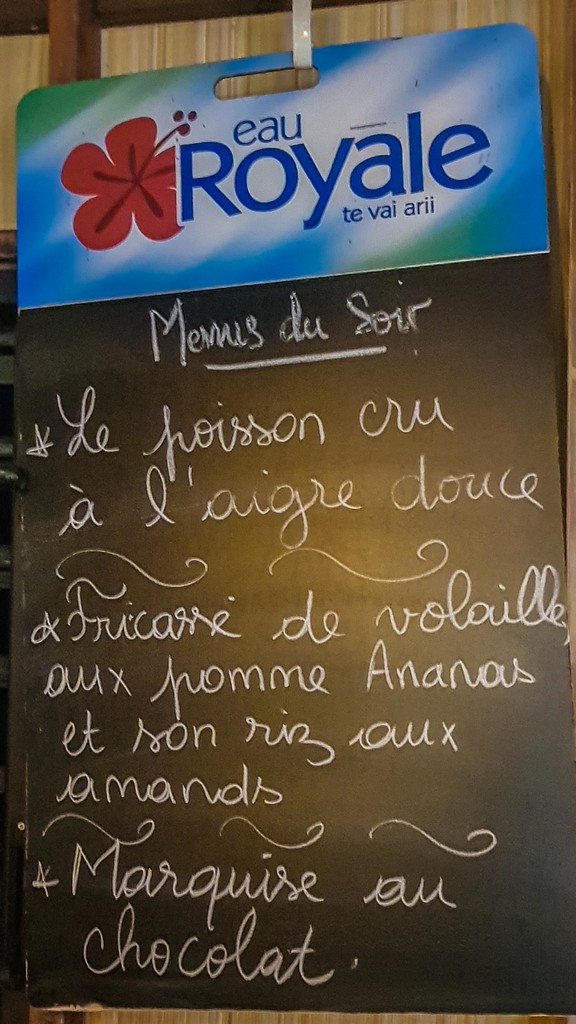 eau
Royale
te vai arii
Menus du Soir
* Le poisson cru
à l'aigre douce
* Fricassé de volaille
aux pomme Ananas
et son riz aux
amands
* Marquise au
chocolat.